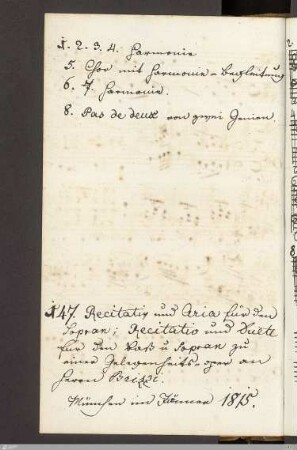 1. 2. 3. 4. Harmonie
5. Chor mit Harmonie-Begleitung
6. 7. Harmonie.
8. Pas de deux von zwei Genien.
№ 47. Recitativ und Aria für den
Sopran; Recitativ und Duett
für den Baß u Sopran zu
einer Gelegenheits-oper an
Herrn
München im Jänner 1815.